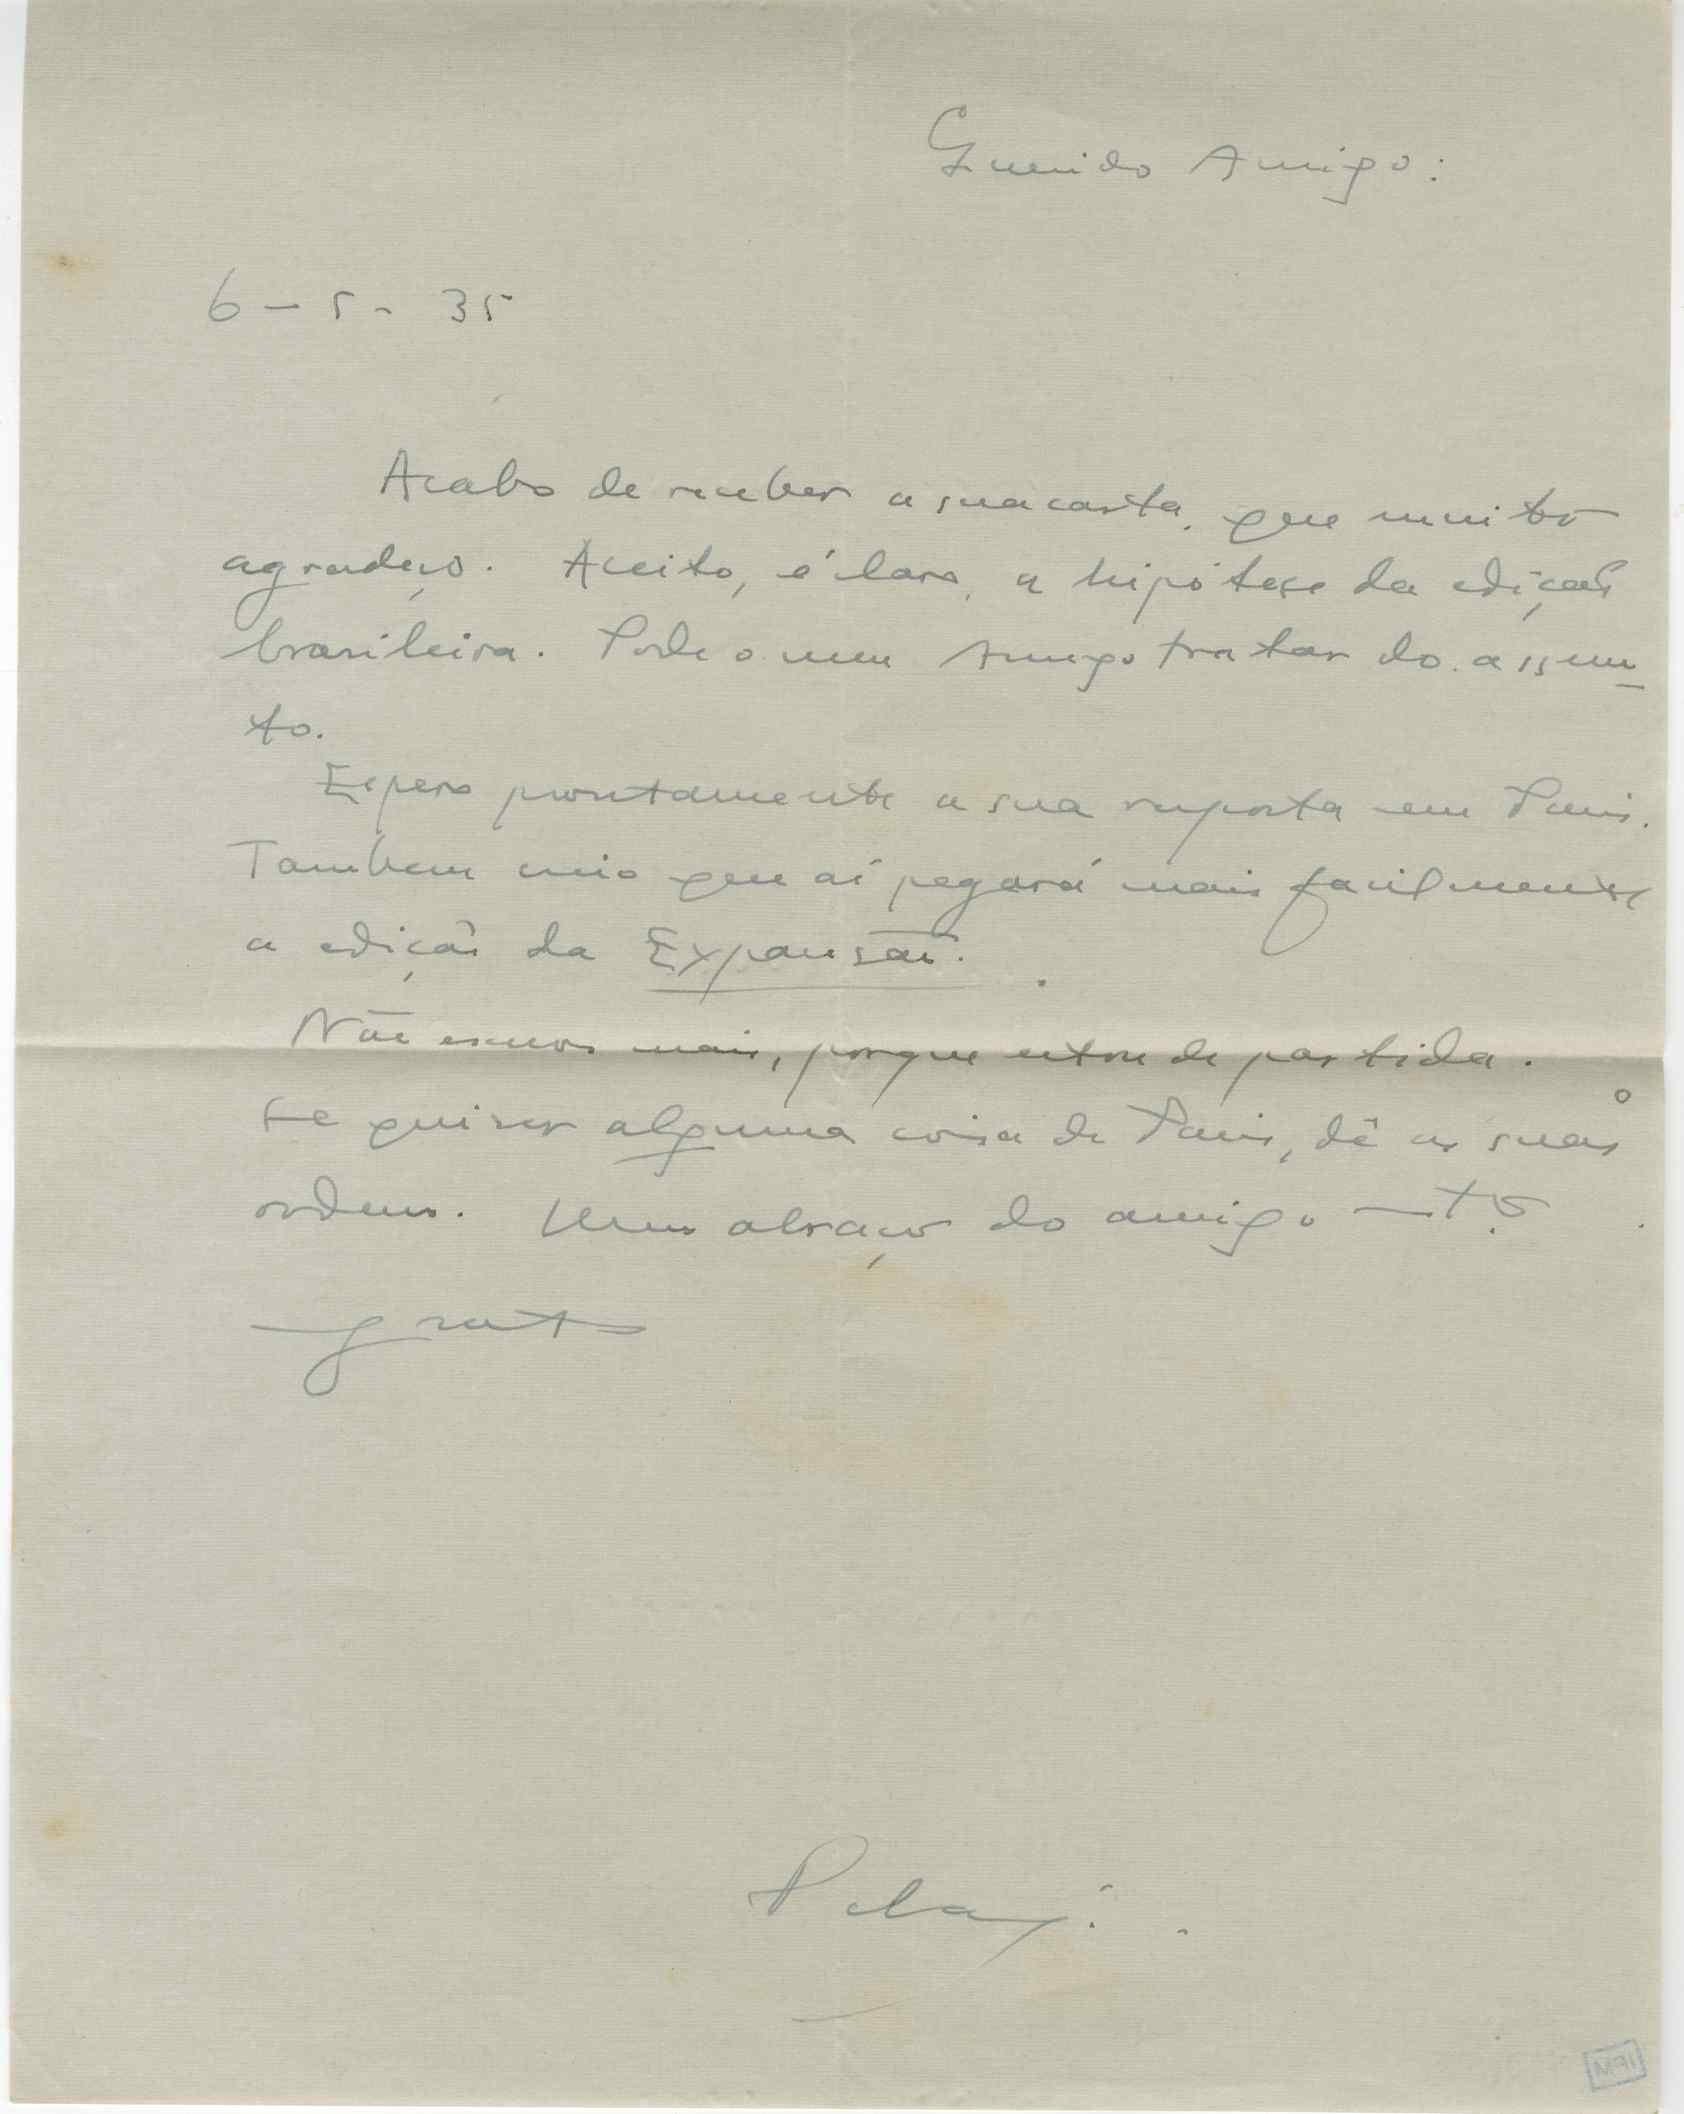 Querido Amigo:
6-5-35
Acabo de receber a sua carta, que muito
agradeço. Aceito, é claro, a hipótese da edição
brasileira. Pode o meu Amigo tratar do assun-
to.
Espero prontamente a sua resposta em Paris.
Tambem creio que aí pegará mais facilmente
a edição da Expansão.
Não escrevo mais, porque estou de partida.
Se quiser alguma coisa de Paris, dê as suas
ordens. Um abraço do amigo
grato